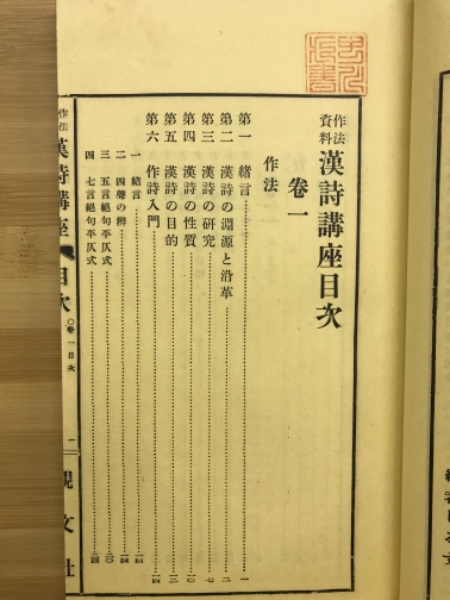 作法資料 漢詩講座目次
卷一
作法
第一 緒言 一
第二 漢詩の淵源と沿革 二
第三 漢詩の研究 七
第四 漢詩の性質 一〇
第五 漢詩の目的 一三
第六 作詩入門 一四
一 緒言 一四
二 四聲の辨 一四
三 五言絕句平仄式 二〇
四 七言絕句平仄式 二四
作法 漢詩講座 目次 〇卷一目次 一 親文社